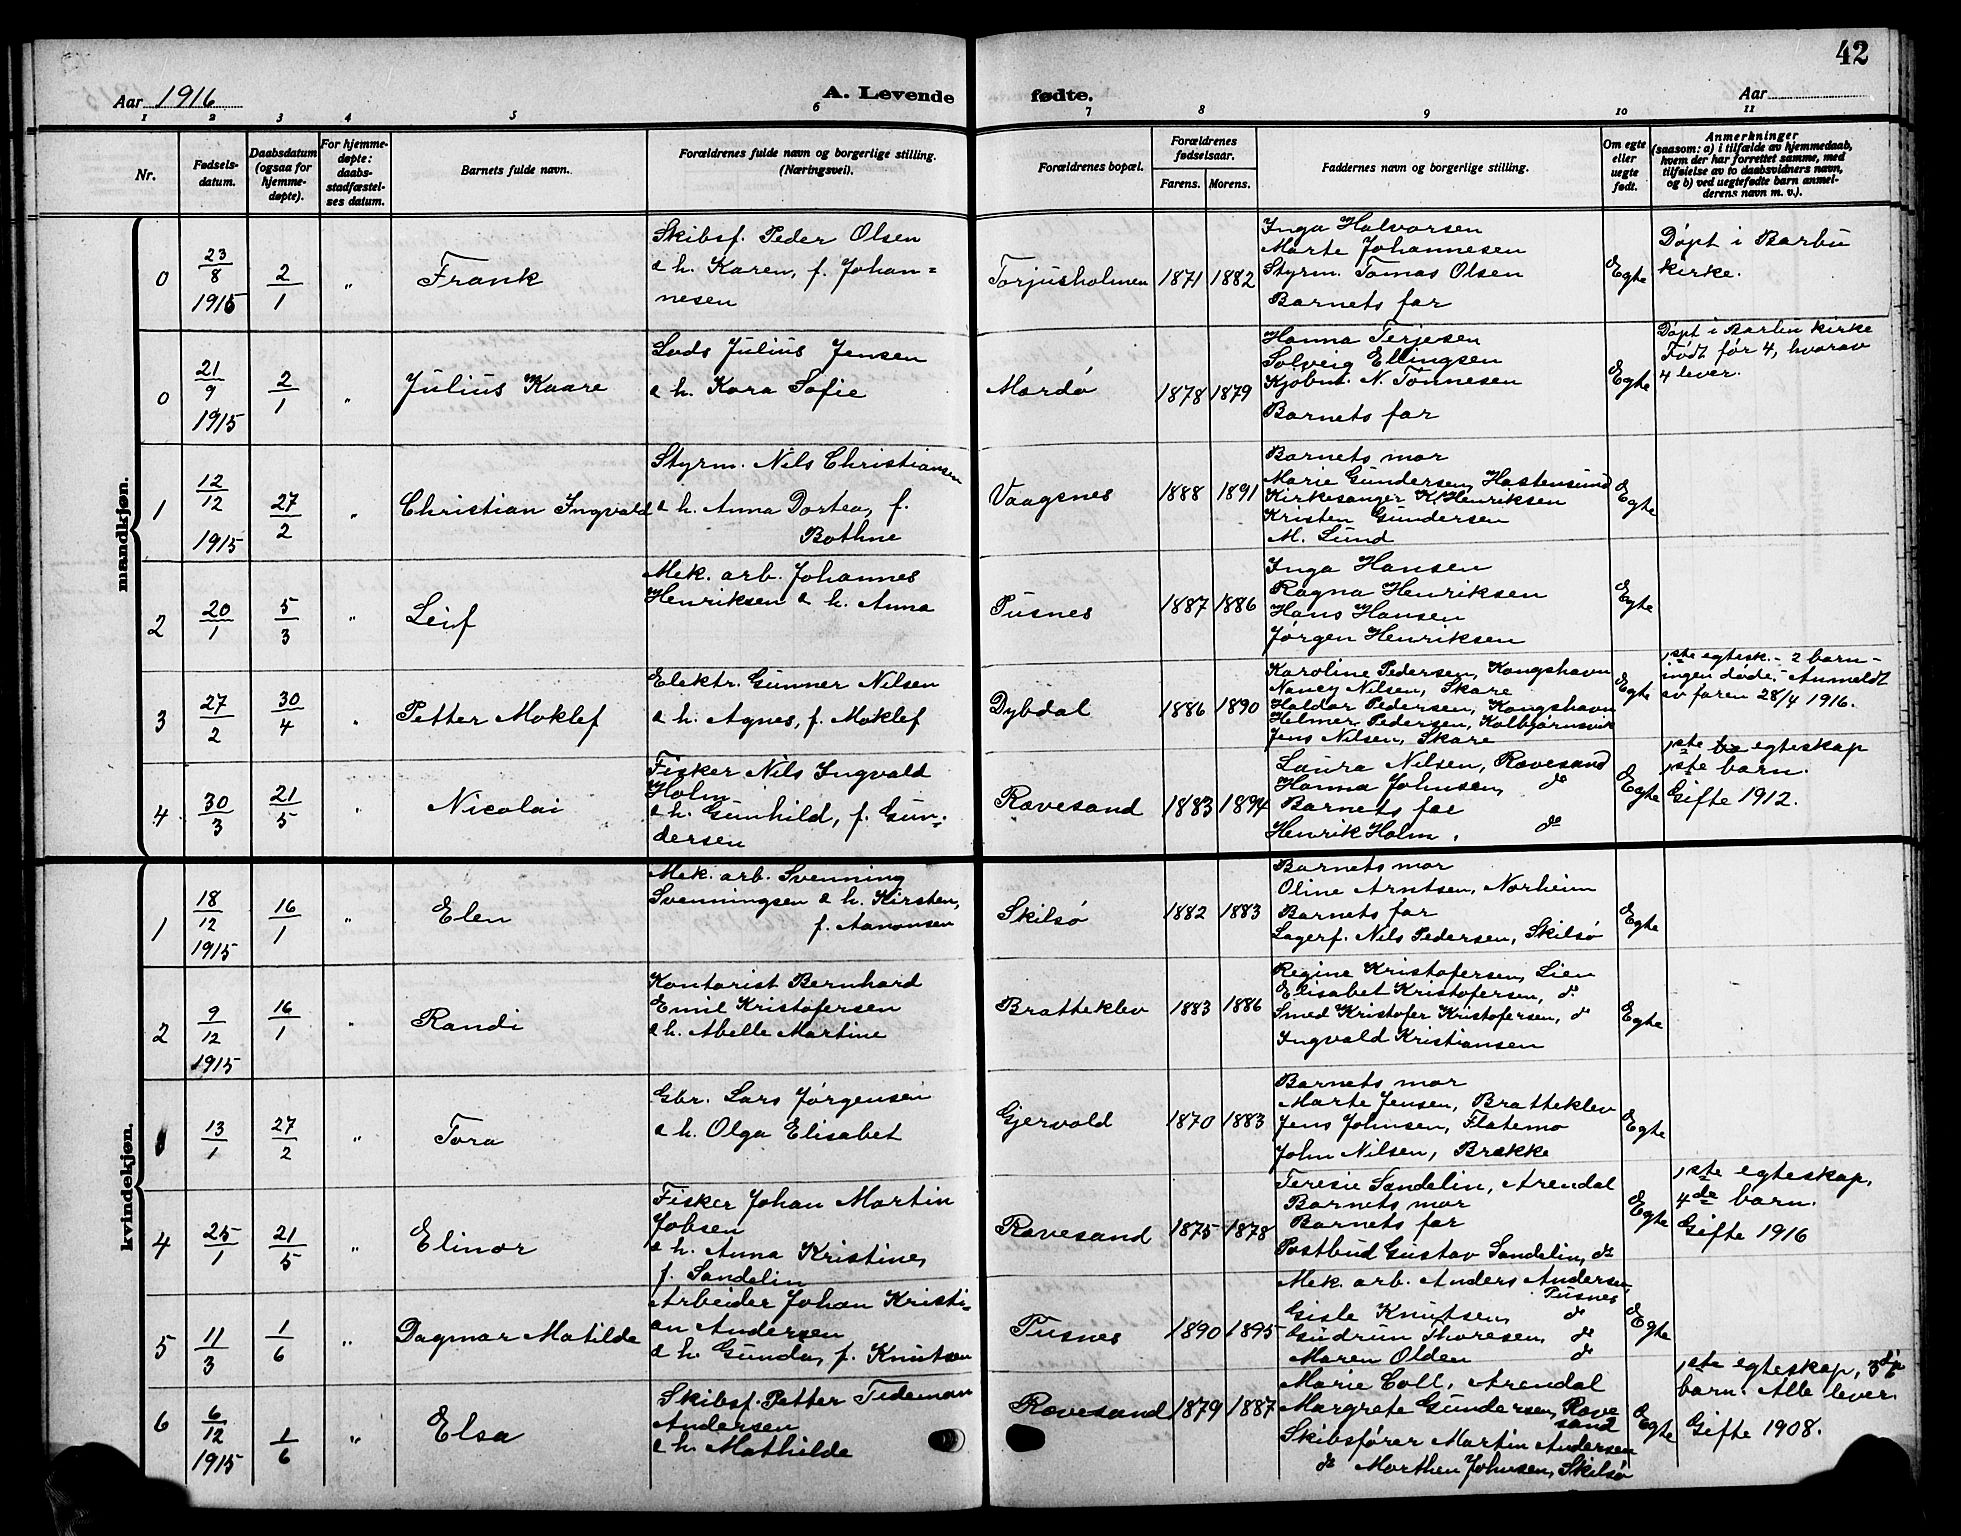 42
Aar 1916
A. Levende fødte.
Aar
1 2 3 4 5 6 7 8 9 10 11
Nr.
Fødsels-
datum.
Daabsdatum
(ogsaa for
hjemme-
døpte).
For hjemme-
døpte:
daabs-
stadfæstel-
ses datum.
Barnets fulde navn.
Forældrenes fulde navn og borgerlige stilling.
(Næringsvei).
Forældrenes bopæl.
Forældrenes
fødselsaar.
Farens. Morens.
Faddernes navn og borgerlige stilling.
Om egte
eller
uegte
født.
Anmerkninger
(saasom: a) i tilfælde av hjemmedaab,
hvem der har forrettet samme, med
tilføielse av to daabsvidners navn,
og b) ved uegtefødte barn anmel-
derens navn m. v.).
mandkjøn.
0
23/8
1915
2/1
"
Frank
Skibsf. Peder Olsen
& h. Karen, f. Johan=
nesen
Torjusholmen
1871 1882
Inga Halvorsen
Marte Johannesen
Styrm. Tomas Olsen
Barnets far
Egte
Døpt i Barbu
kirke.
0
21/9
1915
2/1
"
Julius Kaare
Lods Julius Jensen
& h. Kara Sofie
Mærdø
1878 1879
Hanna Terjesen
Solveig Ellingsen
Kjøbm. N. Tønnesen
Barnets far
Egte
Døpt i Barbu kirke
Født før 4, hvorav
4 lever.
1
12/12
1915
27/2
"
Christian Ingvald
Styrm. Nils Christiansen
& h. Anna Dortea, f.
Bothne
Vaagsnes
1888 1891
Barnets mor
Marie Gundersen, Hastensund
Kirkesanger K. Henriksen
Kristen Gundersen
M. Lund
Egte
2
20/1
5/3
"
Leif
Mek. arb. Johannes
Henriksen & h. Anna
Pusnes
1887 1886
Inga Hansen
Ragna Henriksen
Hans Hansen
Jørgen Henriksen
Egte
3
27/2
30/4
"
Petter Moklef
Elektr. Gunner Nilsen
& h. Agnes, f. Moklef
Dybdal
1886 1890
Karoline Pedersen, Kongshavn
Nancy Nilsen, Skare
Haldor Pedersen, Kongshavn
Helmer Pedersen, Kolbjørnsvik
Jens Nilsen, Skare
Egte
1ste egtesk. - 2 barn -
ingen døde. - Anmeldt
av faren 28/4 1916.
4
30/3
21/5
"
Nicolai
Fisker Nils Ingvald
Holm
& h. Gunhild, f. Gun-
dersen
Rævesand
1883 1894
Laura Nilsen, Rævesand
Hanna Johnsen, do
Barnets far
Henrik Holm, do
Egte
1ste egteskap
1ste barn.
Gifte 1912.
kvindekjøn.
1
18/12
1915
16/1
"
Elen
Mek. arb. Svenning
Svenningsen & h. Kirsten,
f. Aanonsen
Skilsø
1882 1883
Barnets mor
Oline Arntsen, Norheim
Barnets far
Lagerf. Nils Pedersen, Skilsø
Egte
2
9/12
1915
16/1
"
Randi
Kontorist Bernhard
Emil Kristofersen
& h. Abelle Martine
Bratteklev
1883 1886
Regine Kristofersen, Lien
Elisabet Kristofersen, do
Smed Kristofer Kristofersen, do
Ingvald Kristiansen
Egte
13/1
27/2
"
Tora
Gbr. Lars Jørgensen
& h. Olga Elisabet
Gjervold
1870 1883
Barnets mor
Marte Jensen, Bratteklev
Jens Johnsen, Flatemo
John Nilsen, Brække
Egte
4
25/1
21/5
"
Elinor
Fisker Johan Martin
Jobsen
& h. Anna Kristine,
f. Sandelin
Rævesand
1875 1878
Teresie Sandelin, Arendal
Barnets mor
Barnets far
Postbud Gustav Sandelin, do
Egte
1ste egteskap,
4de barn.
Gifte 1916
5
11/3
1/6
"
Dagmar Matilde
Arbeider Johan Kristi-
an Andersen
& h. Gunda, f. Knutsen
Pusnes
1890 1895
Mek. arb. Anders Andersen,
Pusnes
Gisle Knutsen, do
Gudrun Thoresen, do
Maren Olden do
Egte
6
6/12
1915
1/6
"
Elsa
Skibsf. Petter Tideman
Andersen
& h. Mathilde
Rævesand
1879 1887
Marie Coll, Arendal
Margrete Gundersen, Ræve
sand
Skibsfører Martin Andersen
do Marthen Johnsen, Skilsø
Egte
1ste egteskap, 3dje
barn. Alle lever.
Gifte 1908.